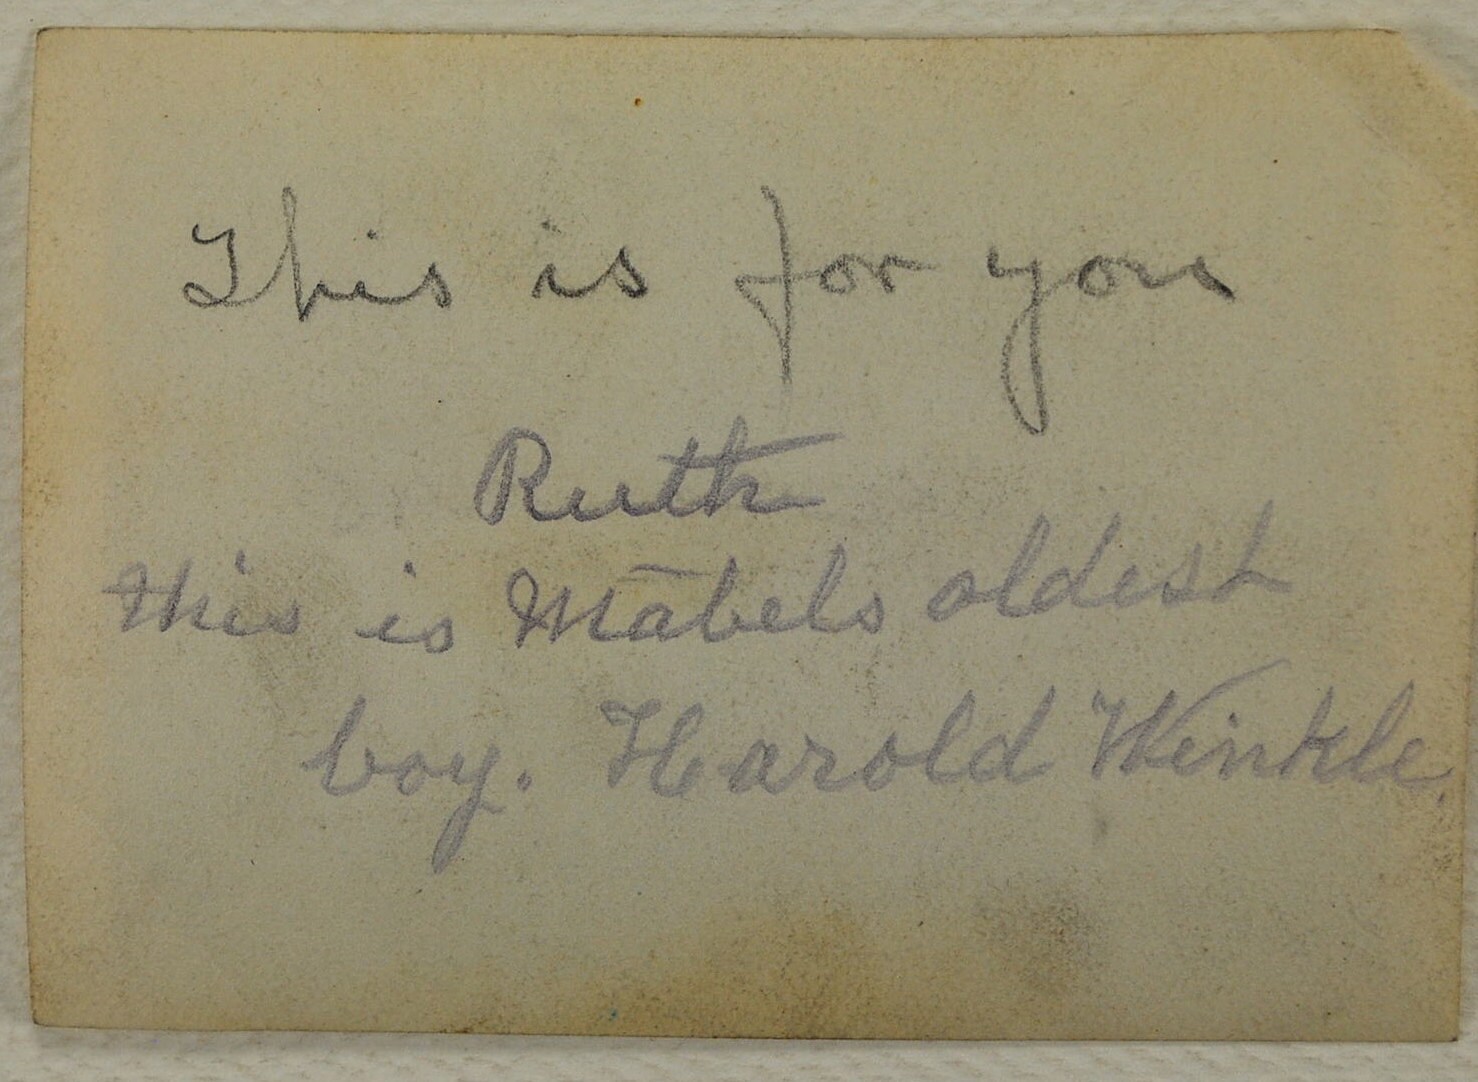 This is for you
Ruth
this is Mabels oldest
boy. Harold Winkle.